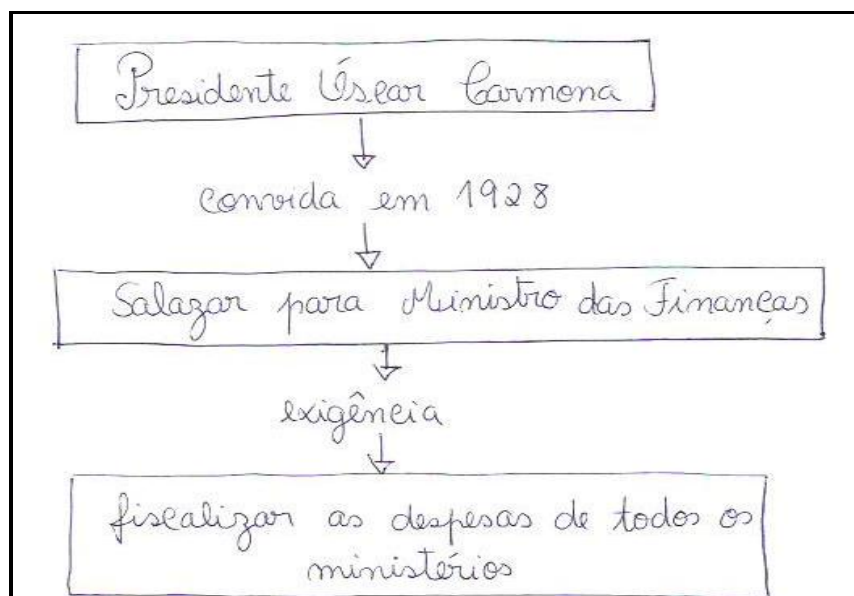 Presidente Óscar Carmona
convida em 1928
Salazar para Ministro das Finanças
exigência
fiscalizar as despesas de todos os
ministérios